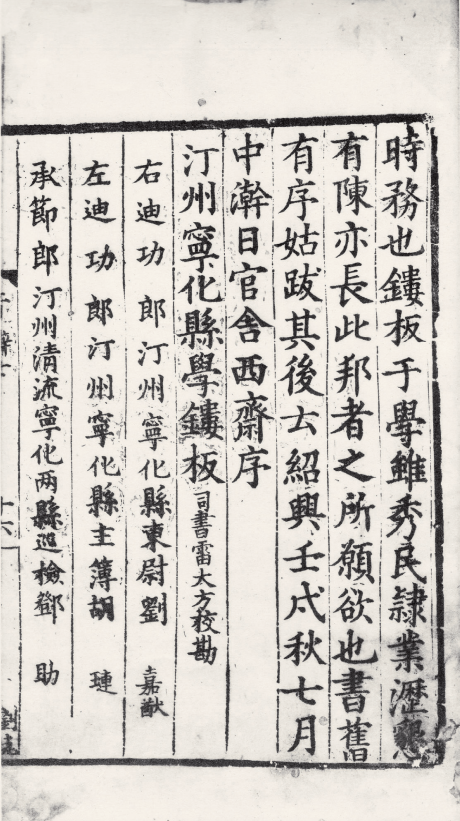 時務也鏤板于學雖秀民隷業瀝懇
有陳亦長此邦者之所願欲也書舊
有序姑跋其後云紹興壬戌秋七月
中澣日官舍西齋序
汀州寧化縣學鏤板司書雷大方校勘
右迪功郎汀州寧化縣東尉劉嘉猷
左迪功郎汀州寧化縣主簿胡璉
承節郎汀州清流寧化兩縣巡檢鄧助